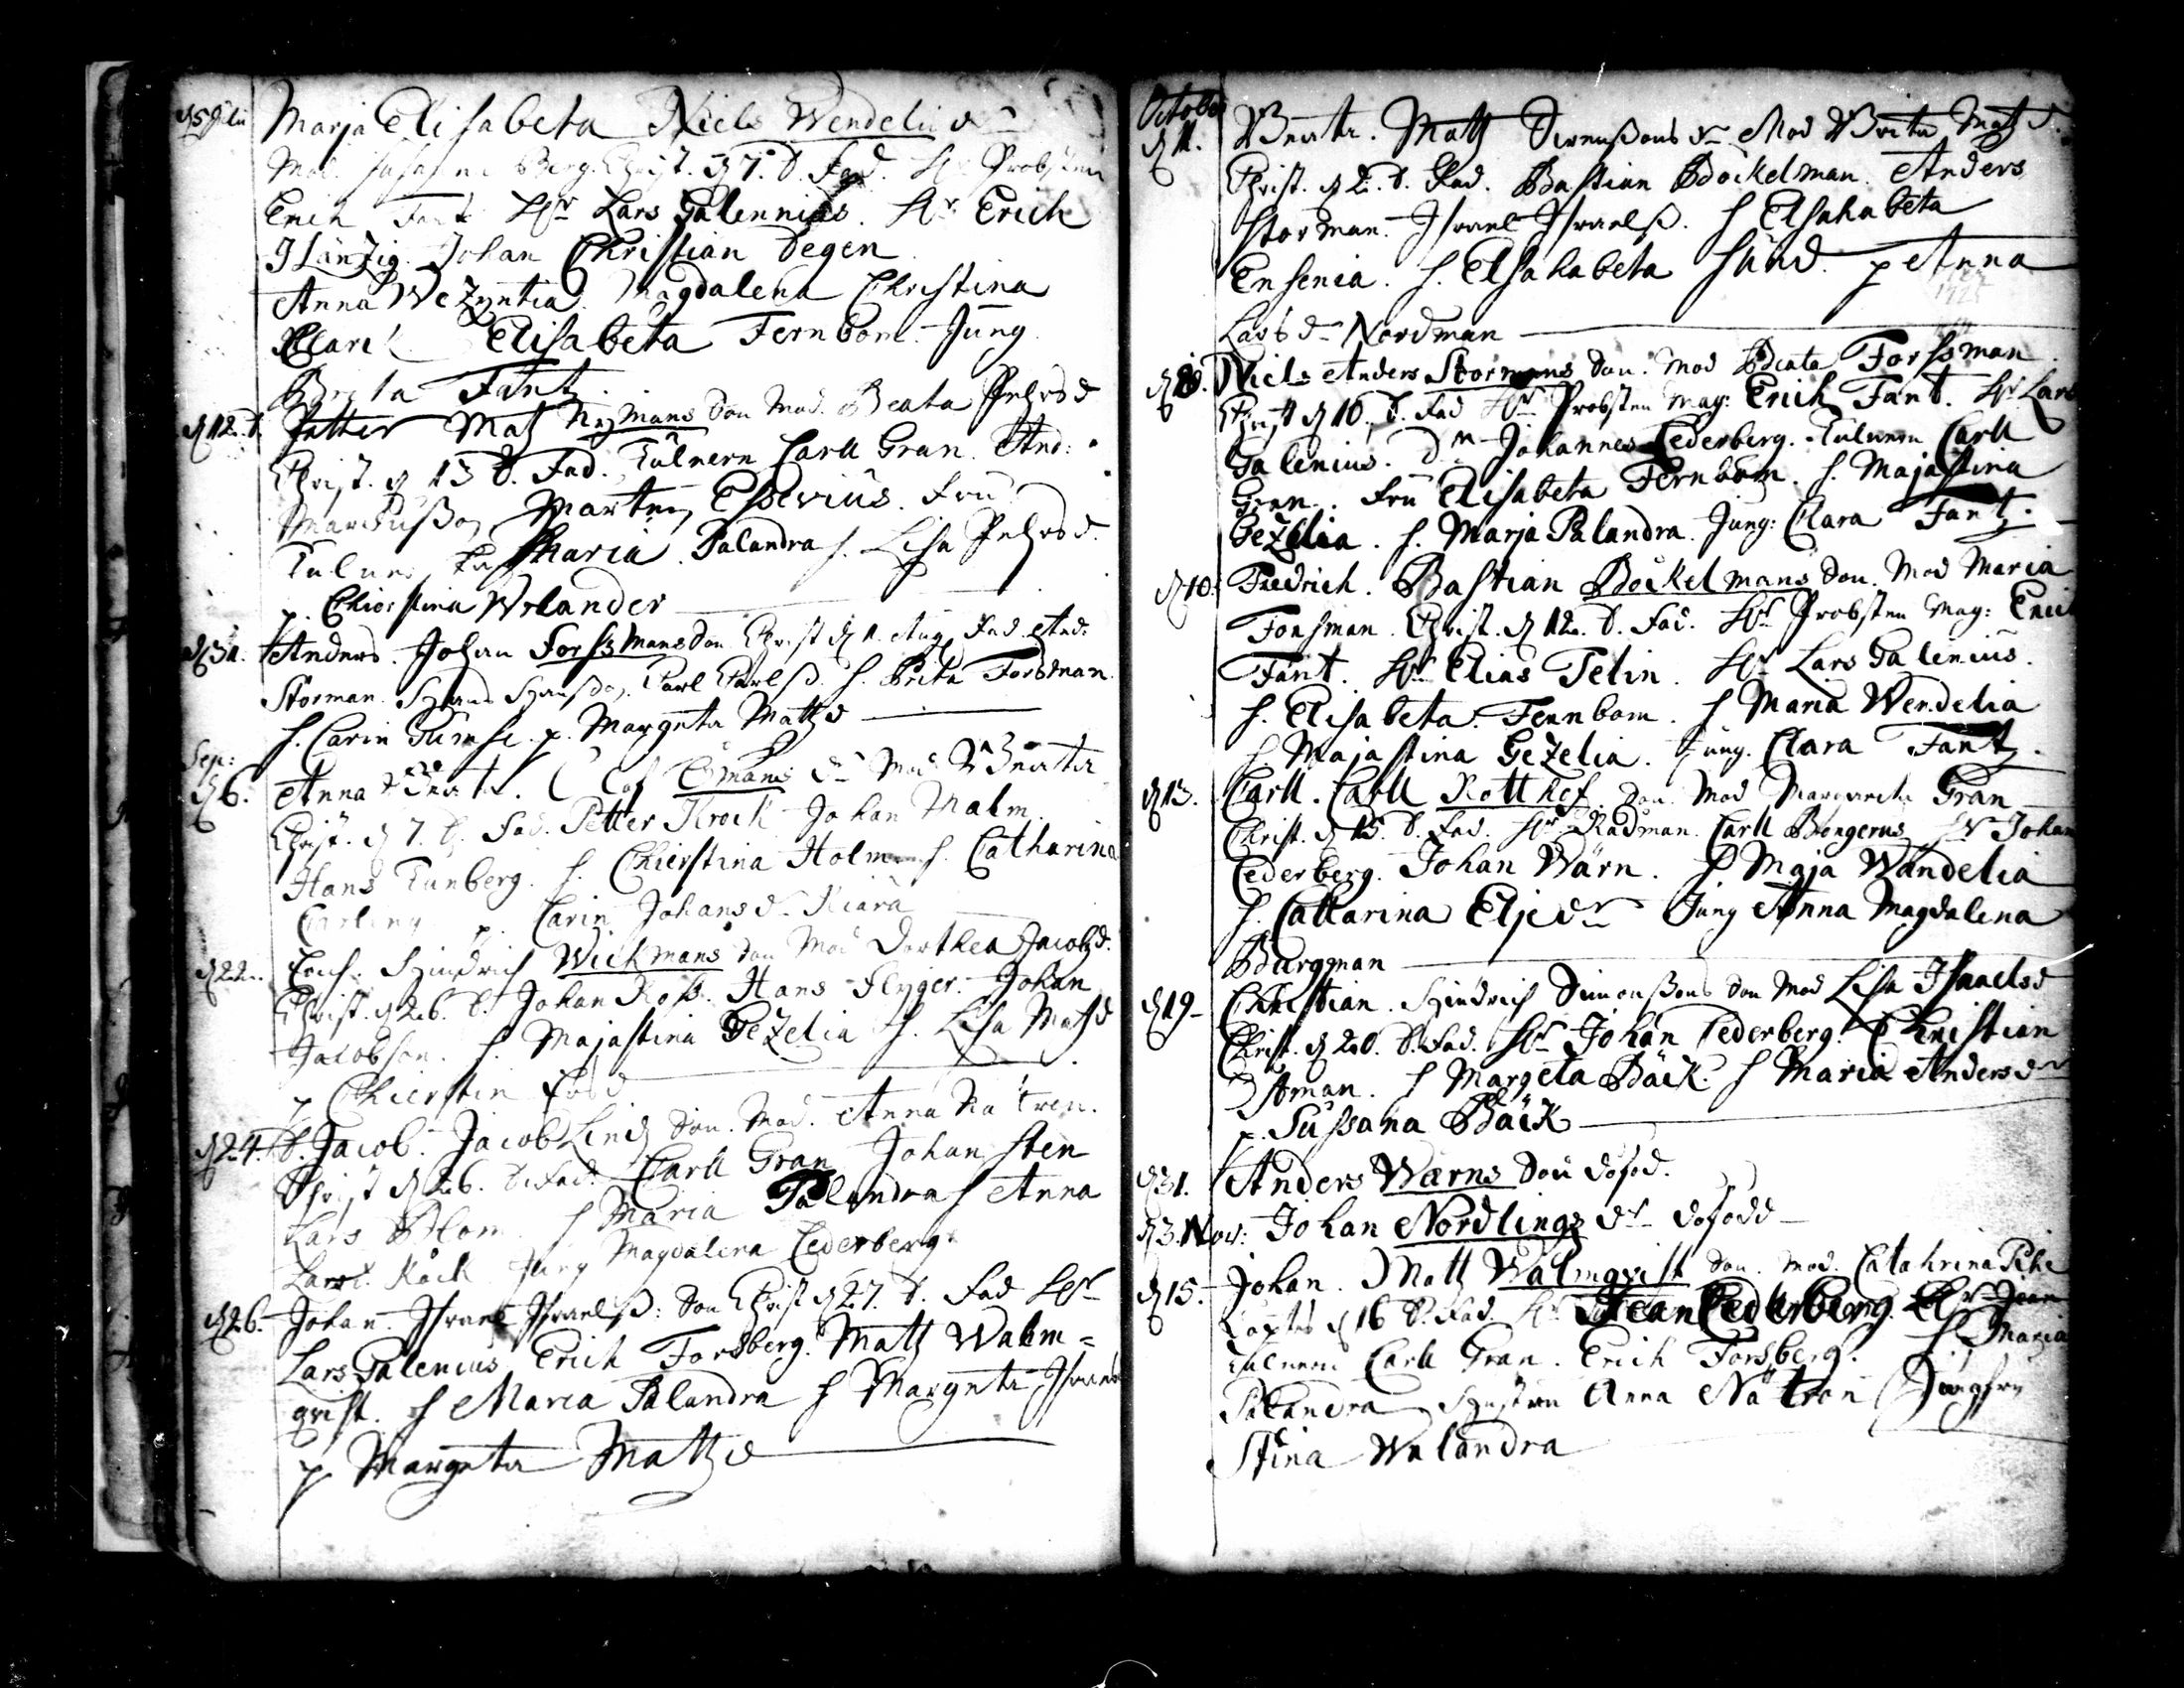 d 5 Julii Marja Elisabeta Niels Wendelii dr
Mod. Susanna Berg. Christ. d 7. d. Fad. Hr Probsten
Erich Fant Hr Lars Galennius. Hr Erich
Ilänzig. Johan Christian Degen
Anna Wezyntia. Magdalena Christina
Clare Elisabeta Fernbom. Jung
Brita Fant
d 12. d. Petter Matz Nymans Son Mod. Beata Pehrsd
Christ. d 13 d. Fad. Tulnern Carll Gran. And:
Marcusson Marten Esevius. Fru
Maria Palandra h. Lisa Pehrsd.
p. Chierstina Welander
d 31. Anders. Johan Forssmans Son Christ d 1. Aug. Fad. And:
Storman. Hans Hanss. Carl Carlss. h. Brita Forssman.
h. Carin p. Margreta Mattzd
Sep:
d 6. Anna Beata. Öhmans dr Mod Beata
Christ. d 7. d. Fad. Petter Krock Johan Malm.
Hans Tunberg. h. Chierstina Holm h. Catharina
Carling p. Carin Johansd. Kiärä
d 22. Erich. Hindrich Wickmans Son Mod Dorthea Jacobsd.
Christ. d 26. d. Johan Ross. Hans Flyger. Johan
Jacobson. h. Majastina Gezelia h. Lisa Matsd
p Chierstin
d 24. d. Jacob. Jacob Lind Son. Mod. Anna Nätren.
Christ d 26. d. Fad. Carll Gran Johan Sten
Lars Blom h Maria Palandra h Anna
Larsd. Käck Jung Magdalena Cederberg.
d 26. Johan. Israel Israelss: Son Christ d 27. d. Fad Hr
Lars Galenius Erich Forsberg. Mattz Walm=
qvist. h Maria Palandra h Margreta
p Margreta Mattzd
October
d 1. Beata. Mattz Simonssons dr Mod Brita Matzd.
Christ. d 2. d. Fad. Bastian Böckelman. Anders
Storman. Israel Israelss. h Elsahabeta
Ensenia. h. Elsahabeta Sund. p Anna
Larsd Nordman
Niels Anders Stormans Son. Mod Beata Forssman
Christ d 10. d. Fad Hr Probsten Mag: Erich Fant. Hr Lars
Galenius. Dn Johannes Cederberg. Tulnern Carll
Gran. Fru Elisabeta Fernbom. h. Majastina
Gezelia. h. Marja Palandra. Jung: Clara Fant.
d 10. Fredrich. Bastian Böckelmans Son. Mod Maria
Forsman. Christ. d 12. d. Fad. Hr Probsten Mag: Erich
Fant. Hr Elias Telin. Hr Lars Galenius.
h. Elisabeta Fernbom. h Maria Wendelia
h Majastina Gezelia. Jung. Clara Fant.
d 13. Carll. Carll Rottkef. Son. Mod Margareta Gran
Christ. d 15. d. Fad. Hr Rådman. Carll Bongerus Hr Johan
Cederberg. Johan Wärn. h Maja Wändelia
h. Cattarina Eljedr Jung Anna Magdalena
Burgman
d 19 Christian. Hindrich Simonssons Son Mod Lisa Isaacksd
Christ. d 20. d. Fad. Hr Johan Cederberg. Christian
Öman. h Margeta Bäck. h Maria Andersdr
p. Sussana Bäck
d 31. Anders Wärns Son döfödd.
d 3. Nov: Johan Nordlings dr döfödd
d 15. Johan. Matz Walmqvist Son. Mod. Catahrina
Döptes d 16 d. Fad. Hr Jean Cederberg. Hr Jean
Tulnern Carll Gran. Erich Forsberg. h Maria
Palandra Hustrun Anna Nätren Jungfru
Stina Walandra